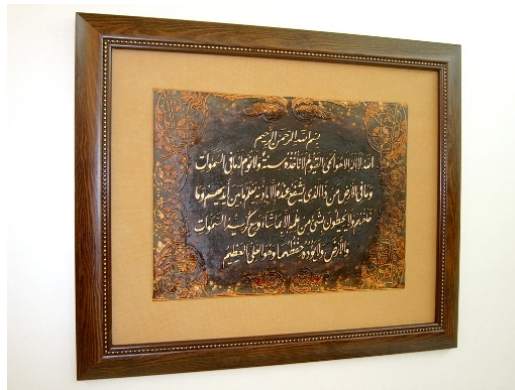 بسم الله الرحمن الرحیم
الله لا اله الا هو الحی القیوم لا تأخذه سنة ولا نوم له ما فی السموات
وما فی الأرض من ذا الذی یشفع عنده الا باذنه یعلم ما بین أیدیهم وما
خلفهم ولا یحیطون بشئ من علمه الا بما شاء وسع کرسیه السموات
والأرض ولا یؤده حفظهما وهو العلی العظیم